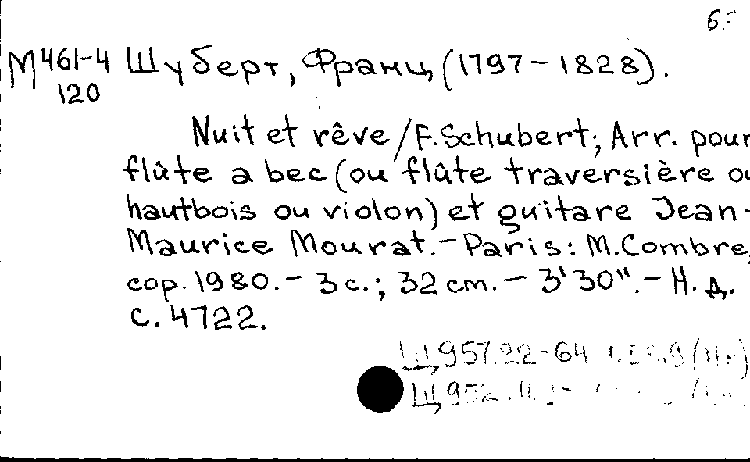 М461-4 Шуберт, Франц (1797-1828).
120
Nuit et rêve / F. Schubert; Arr. pour
flûte a bec (ou flûte traversière ou
hautbois ou violon) et guitare Jean-
Maurice Mourat. - Paris: M. Combre,
cop. 1980. - 3 с.; 32 cm. - 3'30". - Н. д.
С. 4722.
Щ957.22-64